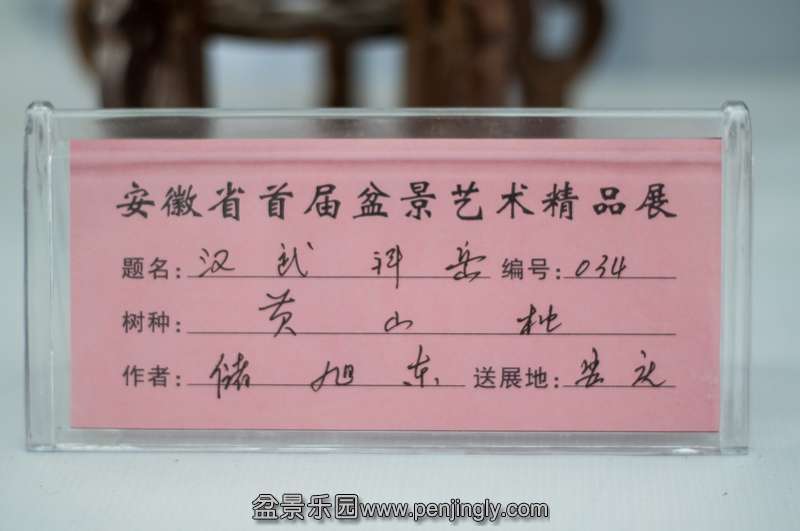 安徽省首届盆景艺术精品展
题名: 汉武岳 编号: 034
树种: 黄山
作者: 储旭东 送展地: 安庆
盆景乐园www.penjingly.com